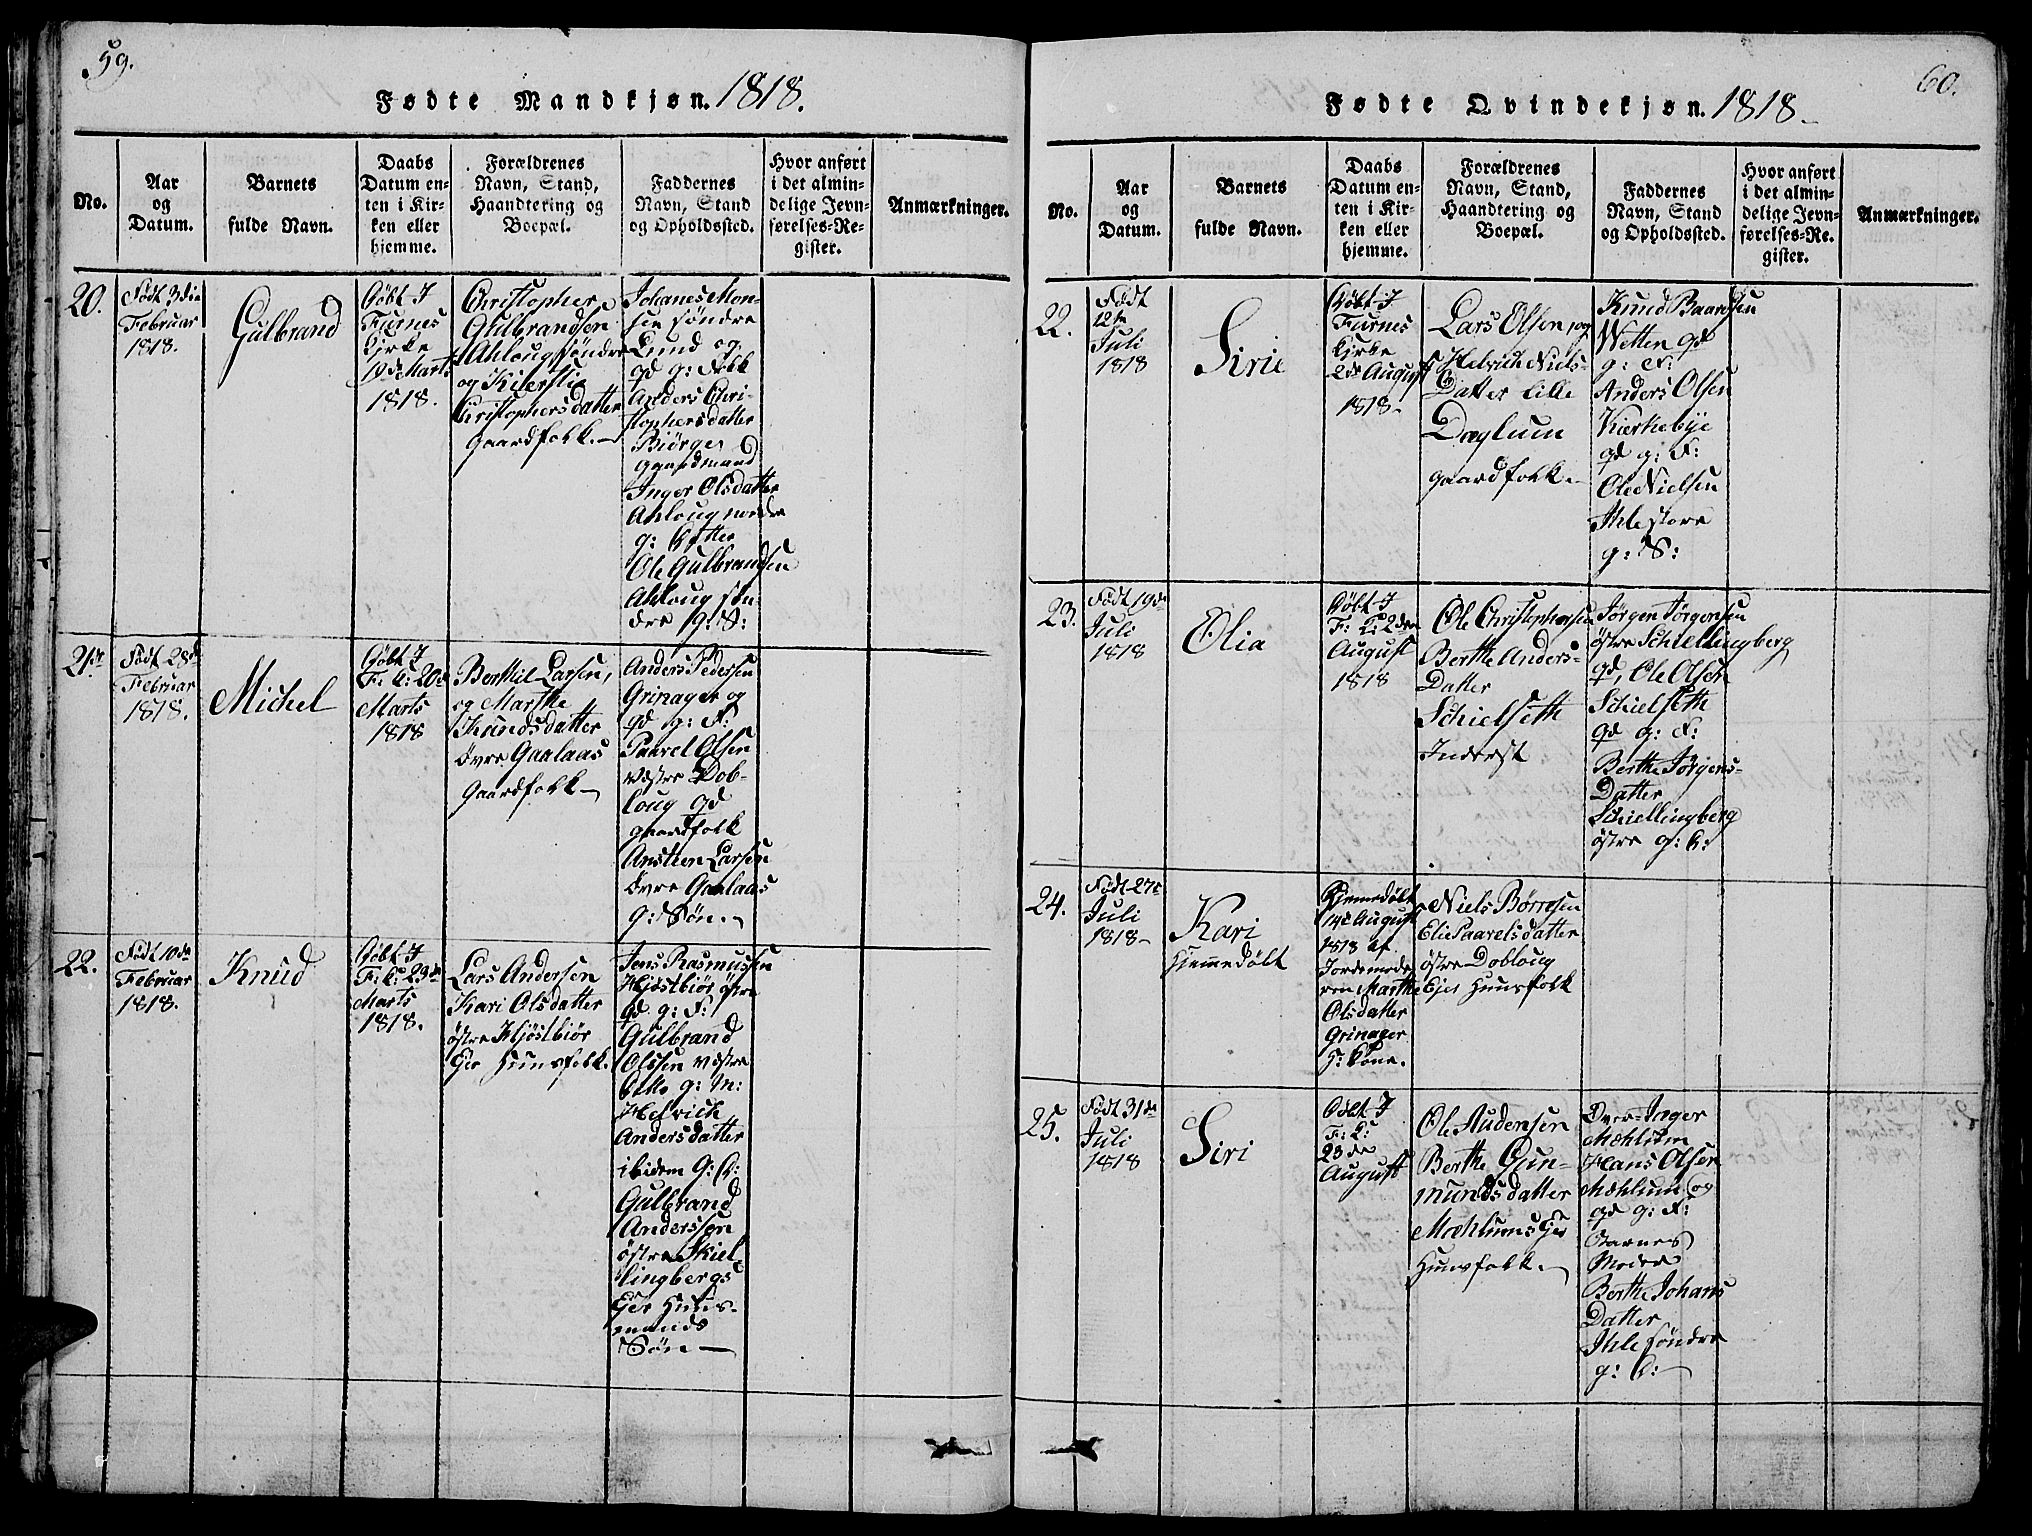 59.
Fødte Mandkjøn. 1818.
No.
Aar
og
Datum.
Barnets
fulde Navn.
Daabs
Datum en-
ten i Kir-
ken eller
hjemme.
Forældrenes
Navn, Stand,
Haandtering og
Boepæl.
Faddernes
Navn, Stand
og Opholdssted.
Hvor anført
i det almin-
delige Jevn-
førelses-Re-
gister.
Anmærkninger.
20.
Født 3die
Februar
1818.
Gulbrand
Døbt I
Furnes
Kirke
19de Marts
1818.
Christopher
Gulbrandsen
Ahloug søndre
og Kierstie
Christophersdatter
Gaardfolk.
Johanes Mon-
sen søndre
Lund og
qd g: Folk
Anders Chri-
stophersdatter
Biörge
gaardmand
Inger Olsdatter
Ahloug nordre
g: Datter
Ole Gulbrandsen
Ahloug søn-
dre g: S:
21de
Født 28de
Februar
1818.
Michel
Døbt I
F: K: 20de
Marts
1818
Berthil Larsen,
og Marthe
Knudsdatter
övre Gaalaas
Gaardfolk
Anders Pedersen
Grinager og
qd g: F:
Paavel Olsen
vestre Dob-
loug qd
gaardfolk
Anstien Larsen
övre Gaalaas
g: Søn.
22.
Født 10de
Februar
1818.
Knud
Døbt I
F: K: 23de
Marts
1818.
Lars Andersen
Kari Olsdatter
östre Hjöstbiör
Eje Huusfolk.
Jens Rasmussen
Hjöstbiör östre
qd g: F:
Gulbrand
Olssen vestre
ditto g: M:
Helvich
Andersdatter
ibidem g: D:
Gulbrand
Anderssøn
östre Skiel-
lingbergs
Eje Huus-
mands
Søn
60.
Fødte Qvindekjøn. 1818
No.
Aar
og
Datum.
Barnets
fulde Navn.
Daabs
Datum en-
ten i Kir-
ken eller
hjemme.
Forældrenes
Navn, Stand,
Haandtering og
Boepæl.
Faddernes
Navn, Stand
og Opholdssted.
Hvor anført
i det almin-
delige Jevn-
førelses-Re-
gister.
Anmærkninger.
22.
Født
12te
Juli
1818
Sirie
Døbt I
Furnes
Kirke
2de August
1818
Lars Olsen, og
Helvich Niels-
Datter lille
Dæglum
gaardfolk.
Knud Baardsen
Wetten qd
g: F:
Anders Olsen
Kirkebye
qd g: F:
Ole Nielsen
Ihle store
g: S:
23.
Født 19de
Juli
1818
Olia
Døbt I
F: K: 2den
August
1818
Ole Christophersen
Berthe Anders-
Datter
Schielseth
Inderst
Jørgen Jørgensen
östre Schiellingberg
qd, Ole Olsen
Schielseth
qd g: F:
Berthe Jörgens-
Datter
Schiellingberg
östre g: D:
24.
Født 27de
Juli
1818
Kari
Hjemmedöbt
Hjemmedöbt
14de August
1818 af
Jordemode-
ren Marthe
Olsdatter
Grinager
H: Kone.
Niels Börresen
Elie Paavelsdatter
östre Dobloug
Ejes Huusfolk
25.
Født 31de
Juli
1818
Siri
Døbt I
F: K:
23de
August
Ole Audensen
Berthe Gun-
mundsdatter
Mæhlums Eje
Huusfolk.
Over-Jæger
Mæhlum
Hans Olsen
Mæhlum og
qd g: F:
Barnes
Moder
Berthe Johans
Datter
Ihle söndre
g: D: